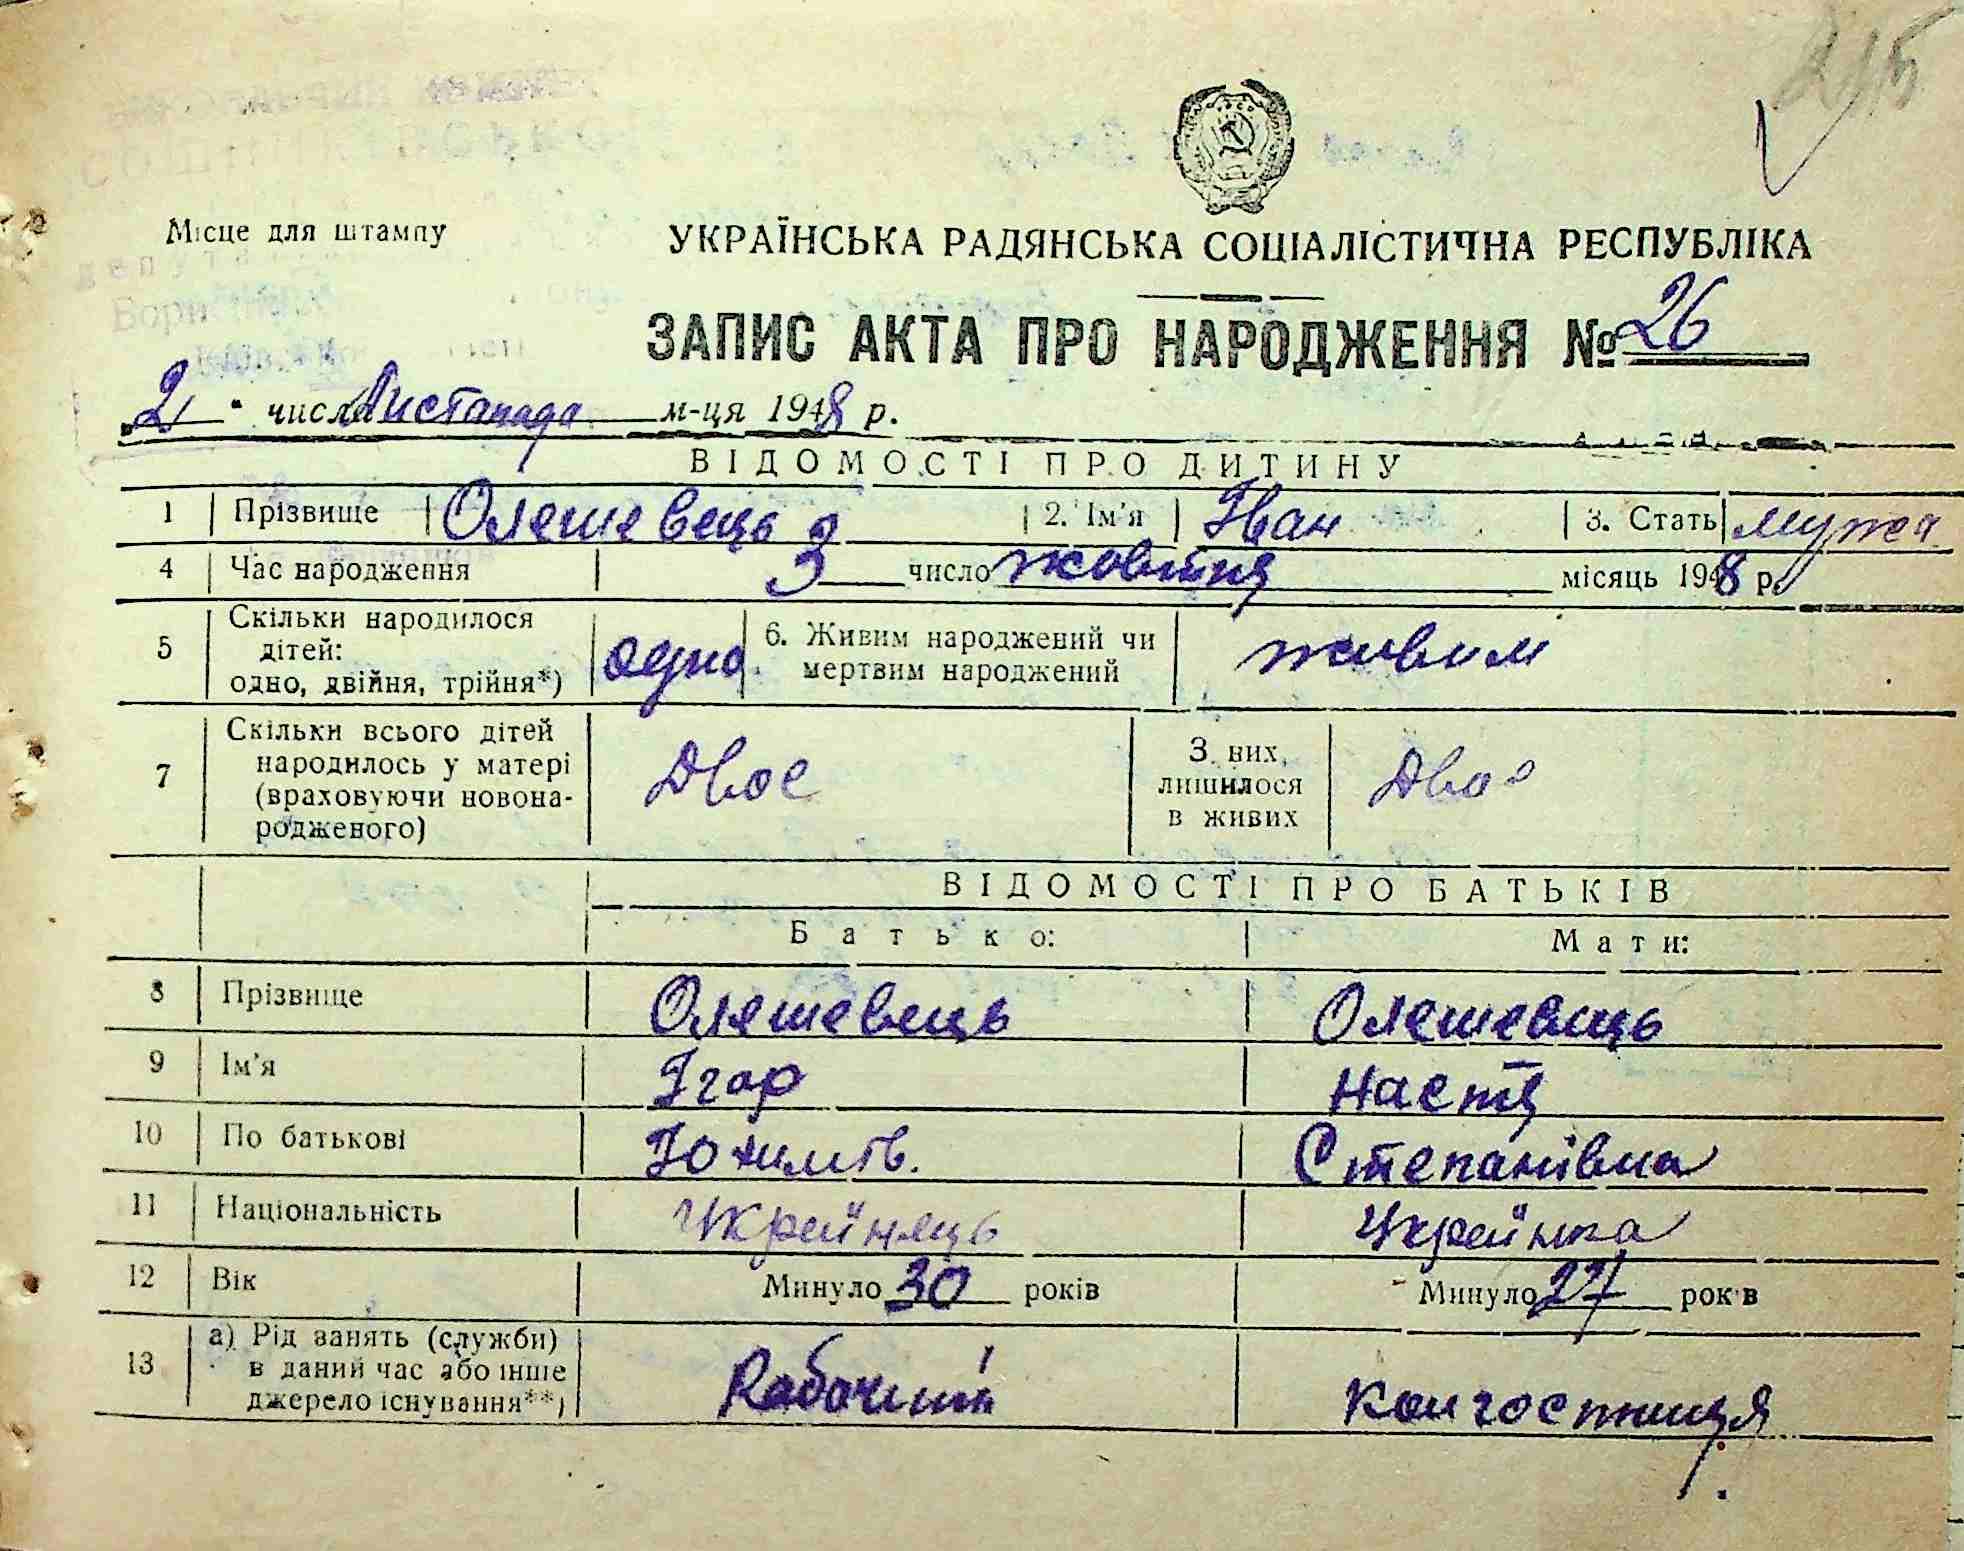 Місце для штампу
УКРАЇНСЬКА РАДЯНСЬКА СОЦІАЛІСТИЧНА РЕСПУБЛІКА
ЗАПИС АКТА ПРО НАРОДЖЕННЯ № 26
„2" числа Листопада м-ця 1948 р.
ВІДОМОСТІ ПРО ДИТИНУ
1 Прізвище Олешевець 2. Ім'я Іван 3. Стать мужеа
4 Час народження 3 число жовтня місяць 1948 р.
5 Скільки народилося дітей: одно, двійня, трійня*) одно. 6. Живим народжений чи мертвим народжений живим
7 Скільки всього дітей народилось у матері (враховуючи новонародженого) Двоє З них, лишилося в живих Двоє
ВІДОМОСТІ ПРО БАТЬКІВ
Батько: Мати:
8 Прізвище Олешевець Олешевець
9 Ім'я Ігор Настя
10 По батькові Степанівна
11 Національність Українець Українка
12 Вік Минуло 30 років Минуло 27 років
13 а) Рід занять (служби) в даний час або інше джерело існування**) Рабочий Колгостниця